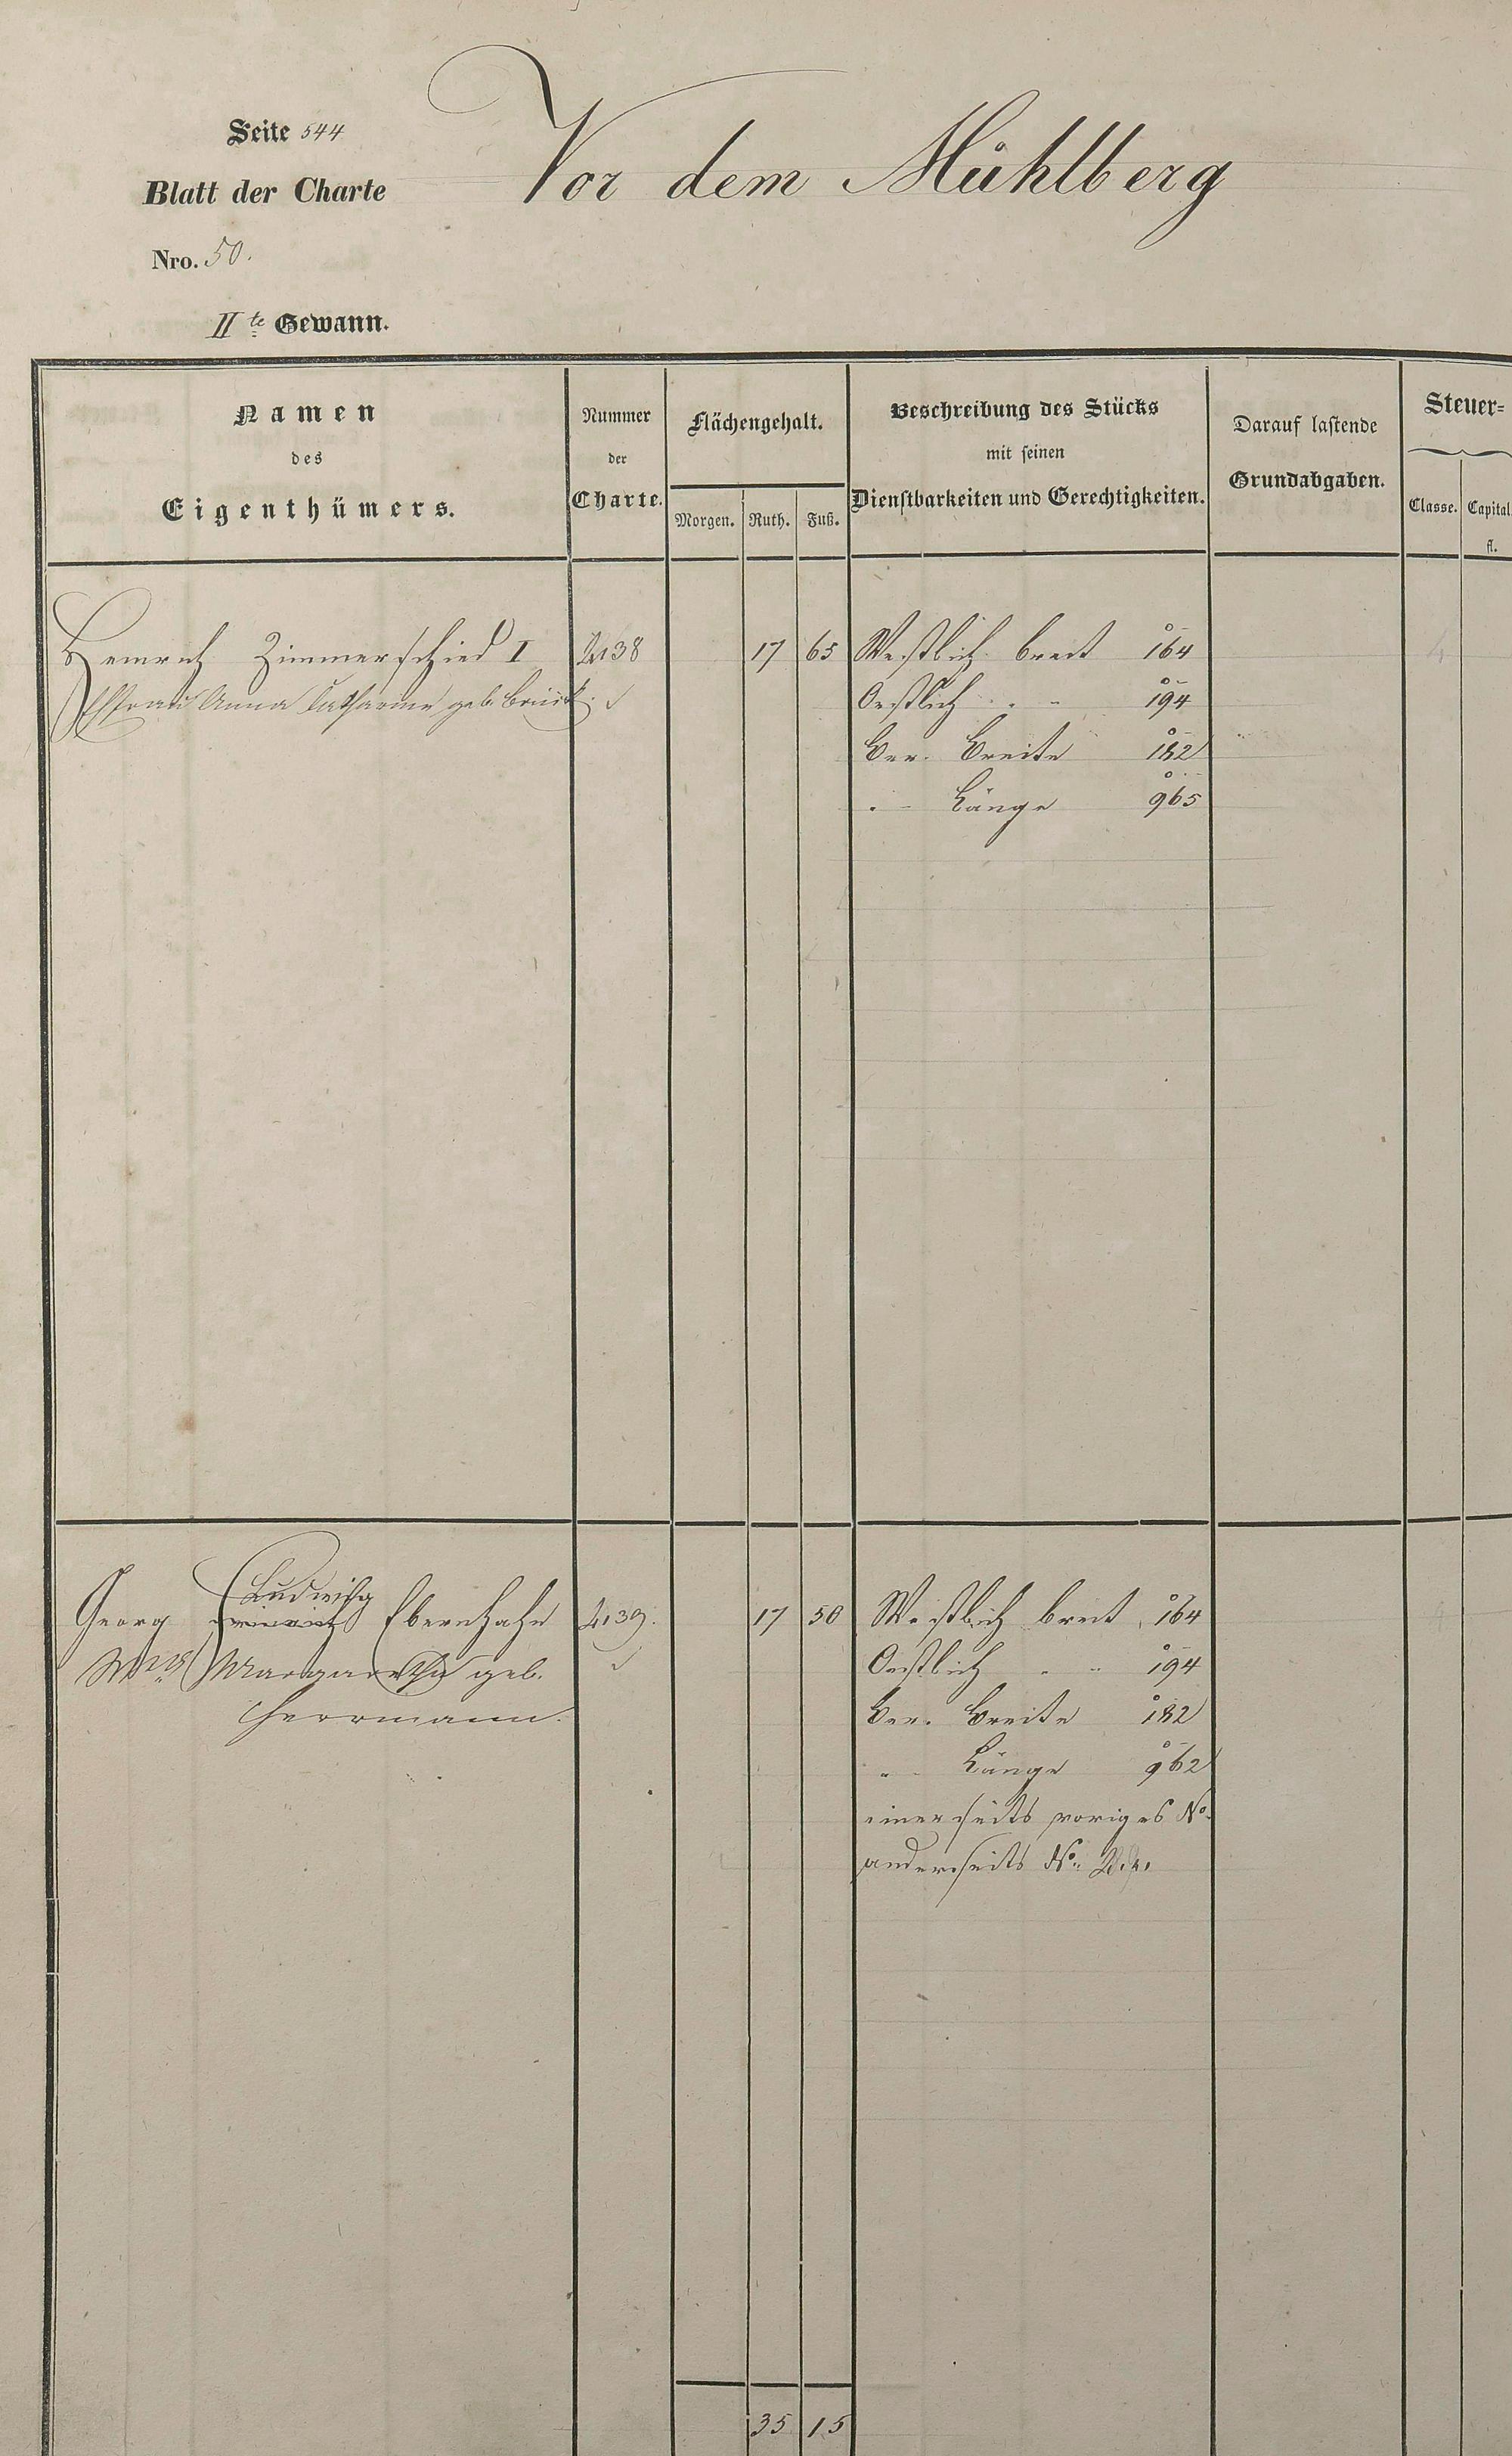 Seite 544
Blatt der Charte
Nro. 50.
IIte Gewann.
Vor dem Mühlberg
Namen
des
Eigenthümers.
Nummer
der
Charte.
Flächengehalt.
Morgen. Ruth. Fuß.
Beschreibung des Stücks
mit seinen
Dienstbarkeiten und Gerechtigkeiten.
Darauf lastende
Grundabgaben.
Steuer=
Classe. Capital
fl.
Heinrich Zimmerschied I 2138 17 65 Westlich breit 164
Ehfrau Anna Catharine geb. Brück. Oestlich " " 194
Ber. Breite 182
" Länge 965
Ludwig
Georg Heinrich Ebernhahn 2139. 17 50 Westlich breit 164
Margaretha geb. Oestlich " " 194
Herrmann. Ber. Breite 182
" Länge 962
einerseits voriges No.
anderseits No.
35 15